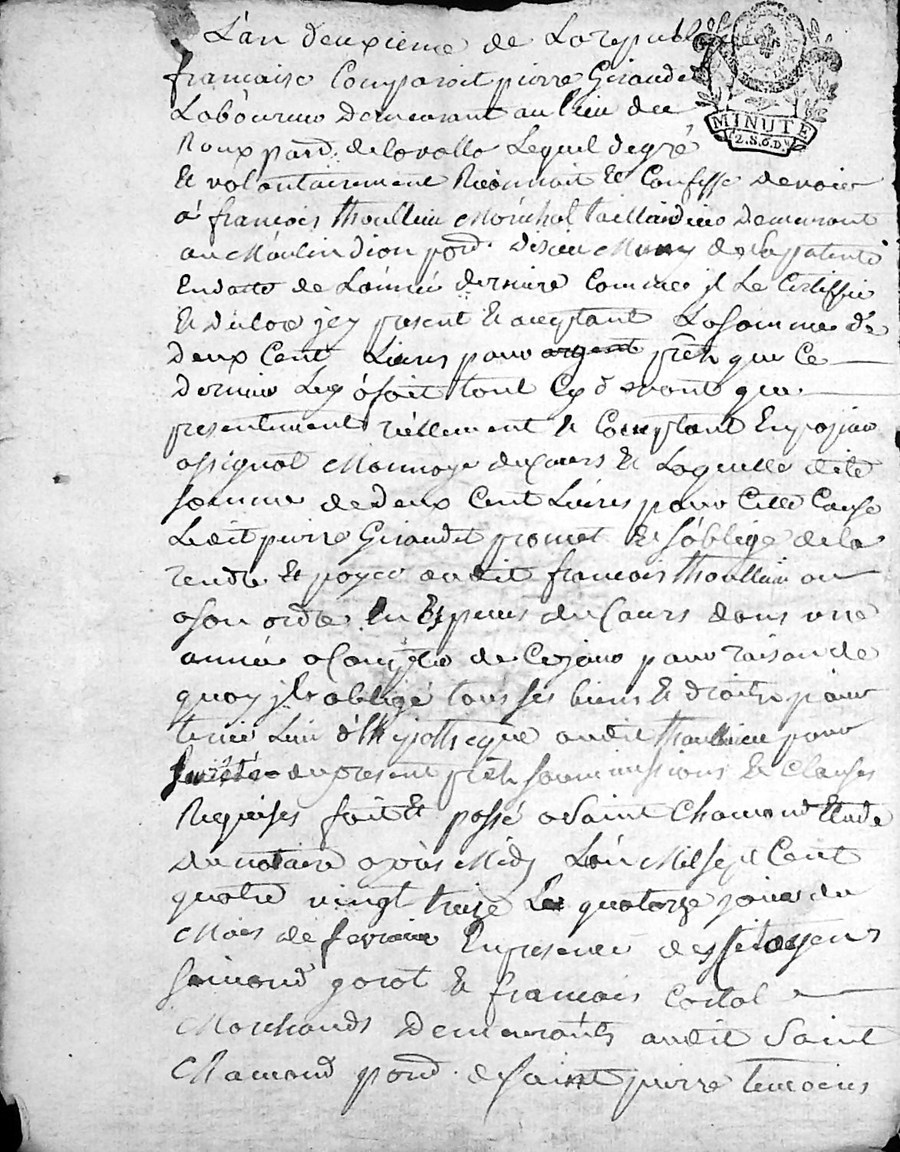 L'an deuxieme de La republ
francaise Comparoit pierre Giraudet
Laboureur demeurant au lieu du
MINUTE
2.S.6.D.
Roux pard. de lavalla Lequel de gré
Et volontairement Reconnoit Et Confesse devoir
a françois thoullieu Maréchal taillandier demeurant
au Moulin dion pard. de la patente
En datte de L'année derniere Comme il Le Certiffie
Et icy present Et acceptant La somme de
deux Cent Livres pour argent prêt que Ce
dernier Luy a fait tant Cy devant que
presentement réellement Et Comptant En papier
assignat Monnoye du Cours Et Laquelle dite
somme de deux Cent Livres pour Cette Cause
Ledit pierre Giraudet promet Et s'oblige de la
rendre Et payer audit francois thoullieu ou
a son ordre En Especes du Cours dans une
année a Compter de Ce jour pour raison de
quoy il a obligé tous ses biens Et droits pour
tenir Lieu d'hypotheque audit thoullieu pour
sureté du present prêt soummissions Et Clauses
Requises fait Et passé a Saint Chamond Etude
du notaire après Midy L'an Mil sept Cent
quatre vingt treize Le quatorze jour du
Mois de fevrier En presence des Citoyens
simond gorot Et francois Costal
Marchands demeurants audit Saint
Chamond pard. de saint pierre temoins